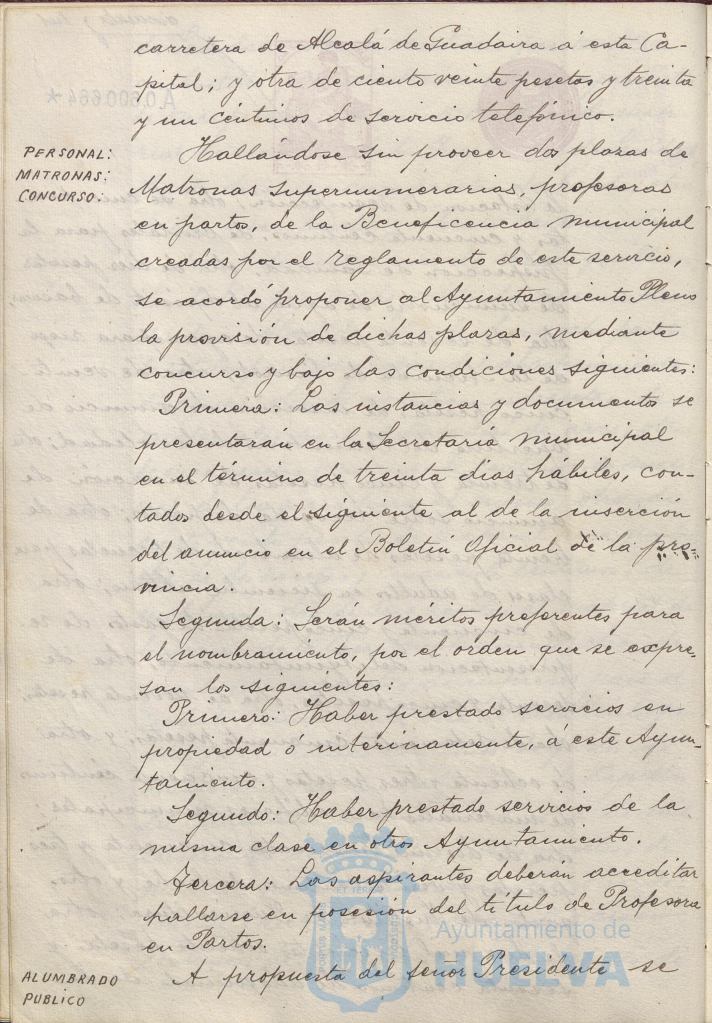 carretera de Alcalá de Guadaira á esta Ca-
pital; y otra de ciento veinte pesetas y treinta
y un céntimos de servicio telefónico.
PERSONAL:
MATRONAS:
CONCURSO:
Hallándose sin proveer dos plazas de
Matronas supernumerarias, profesoras
en partos, de la Beneficencia municipal
creadas por el reglamento de este servicio,
se acordó proponer al Ayuntamiento Pleno
la provisión de dichas plazas, mediante
concurso y bajo las condiciones siguientes:
Primera: Las instancias y documentos se
presentarán en la Secretaría municipal
en el término de treinta dias hábiles, con-
tados desde el siguiente al de la inserción
del anuncio en el Boletín Oficial de la pro-
vincia.
Segunda: Serán méritos preferentes para
el nombramiento, por el orden que se expre-
san los siguientes:
Primero: Haber prestado servicios en
propiedad ó interinamente, á este Ayun-
tamiento.
Segundo: Haber prestado servicios de la
misma clase en otros Ayuntamiento.
Tercera: Las aspirantes deberán acreditar
hallarse en posesión del título de Profesora
en Partos.
ALUMBRADO
PUBLICO
A propuesta del señor Presidente se
Ayuntamiento de
HUELVA